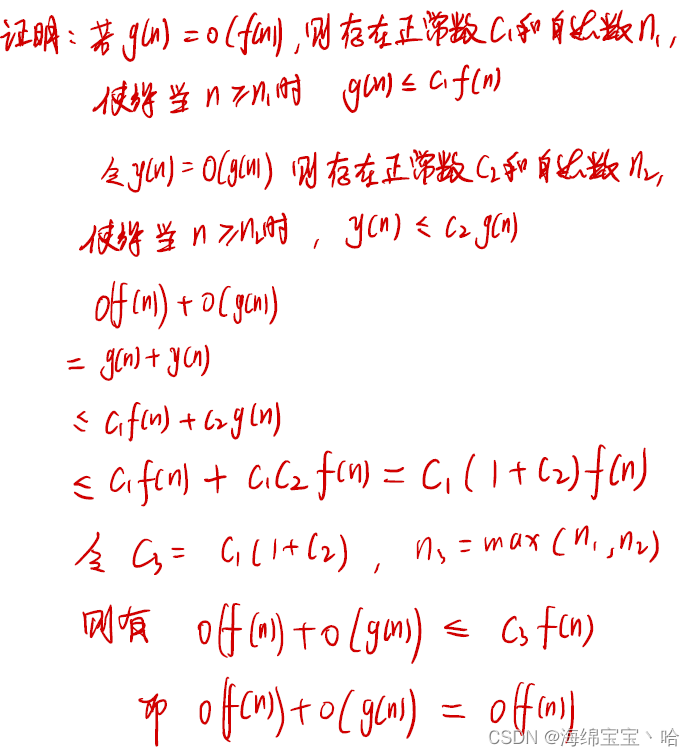 证明：若 g(n) = O(f(n)), 则存在正常数C₁和自然数n₁,
使得当 n ≥ n₁时 g(n) ≤ C₁f(n)
令y(n) = O(g(n)) 则存在正常数C₂和自然数n₂,
使得当 n ≥ n₂时, y(n) ≤ C₂g(n)
Of(n)) + O(g(n))
= g(n) + y(n)
≤ C₁f(n) + C₂g(n)
≤ C₁f(n) + C₁C₂f(n) = C₁(1+C₂)f(n)
令 C₃ = C₁(1+C₂), n₃ = max(n₁,n₂)
则有 Of(n)) + O(g(n)) ≤ C₃f(n)
即 Of(n)) + O(g(n)) = Of(n))
CSDN @海绵宝宝丶哈